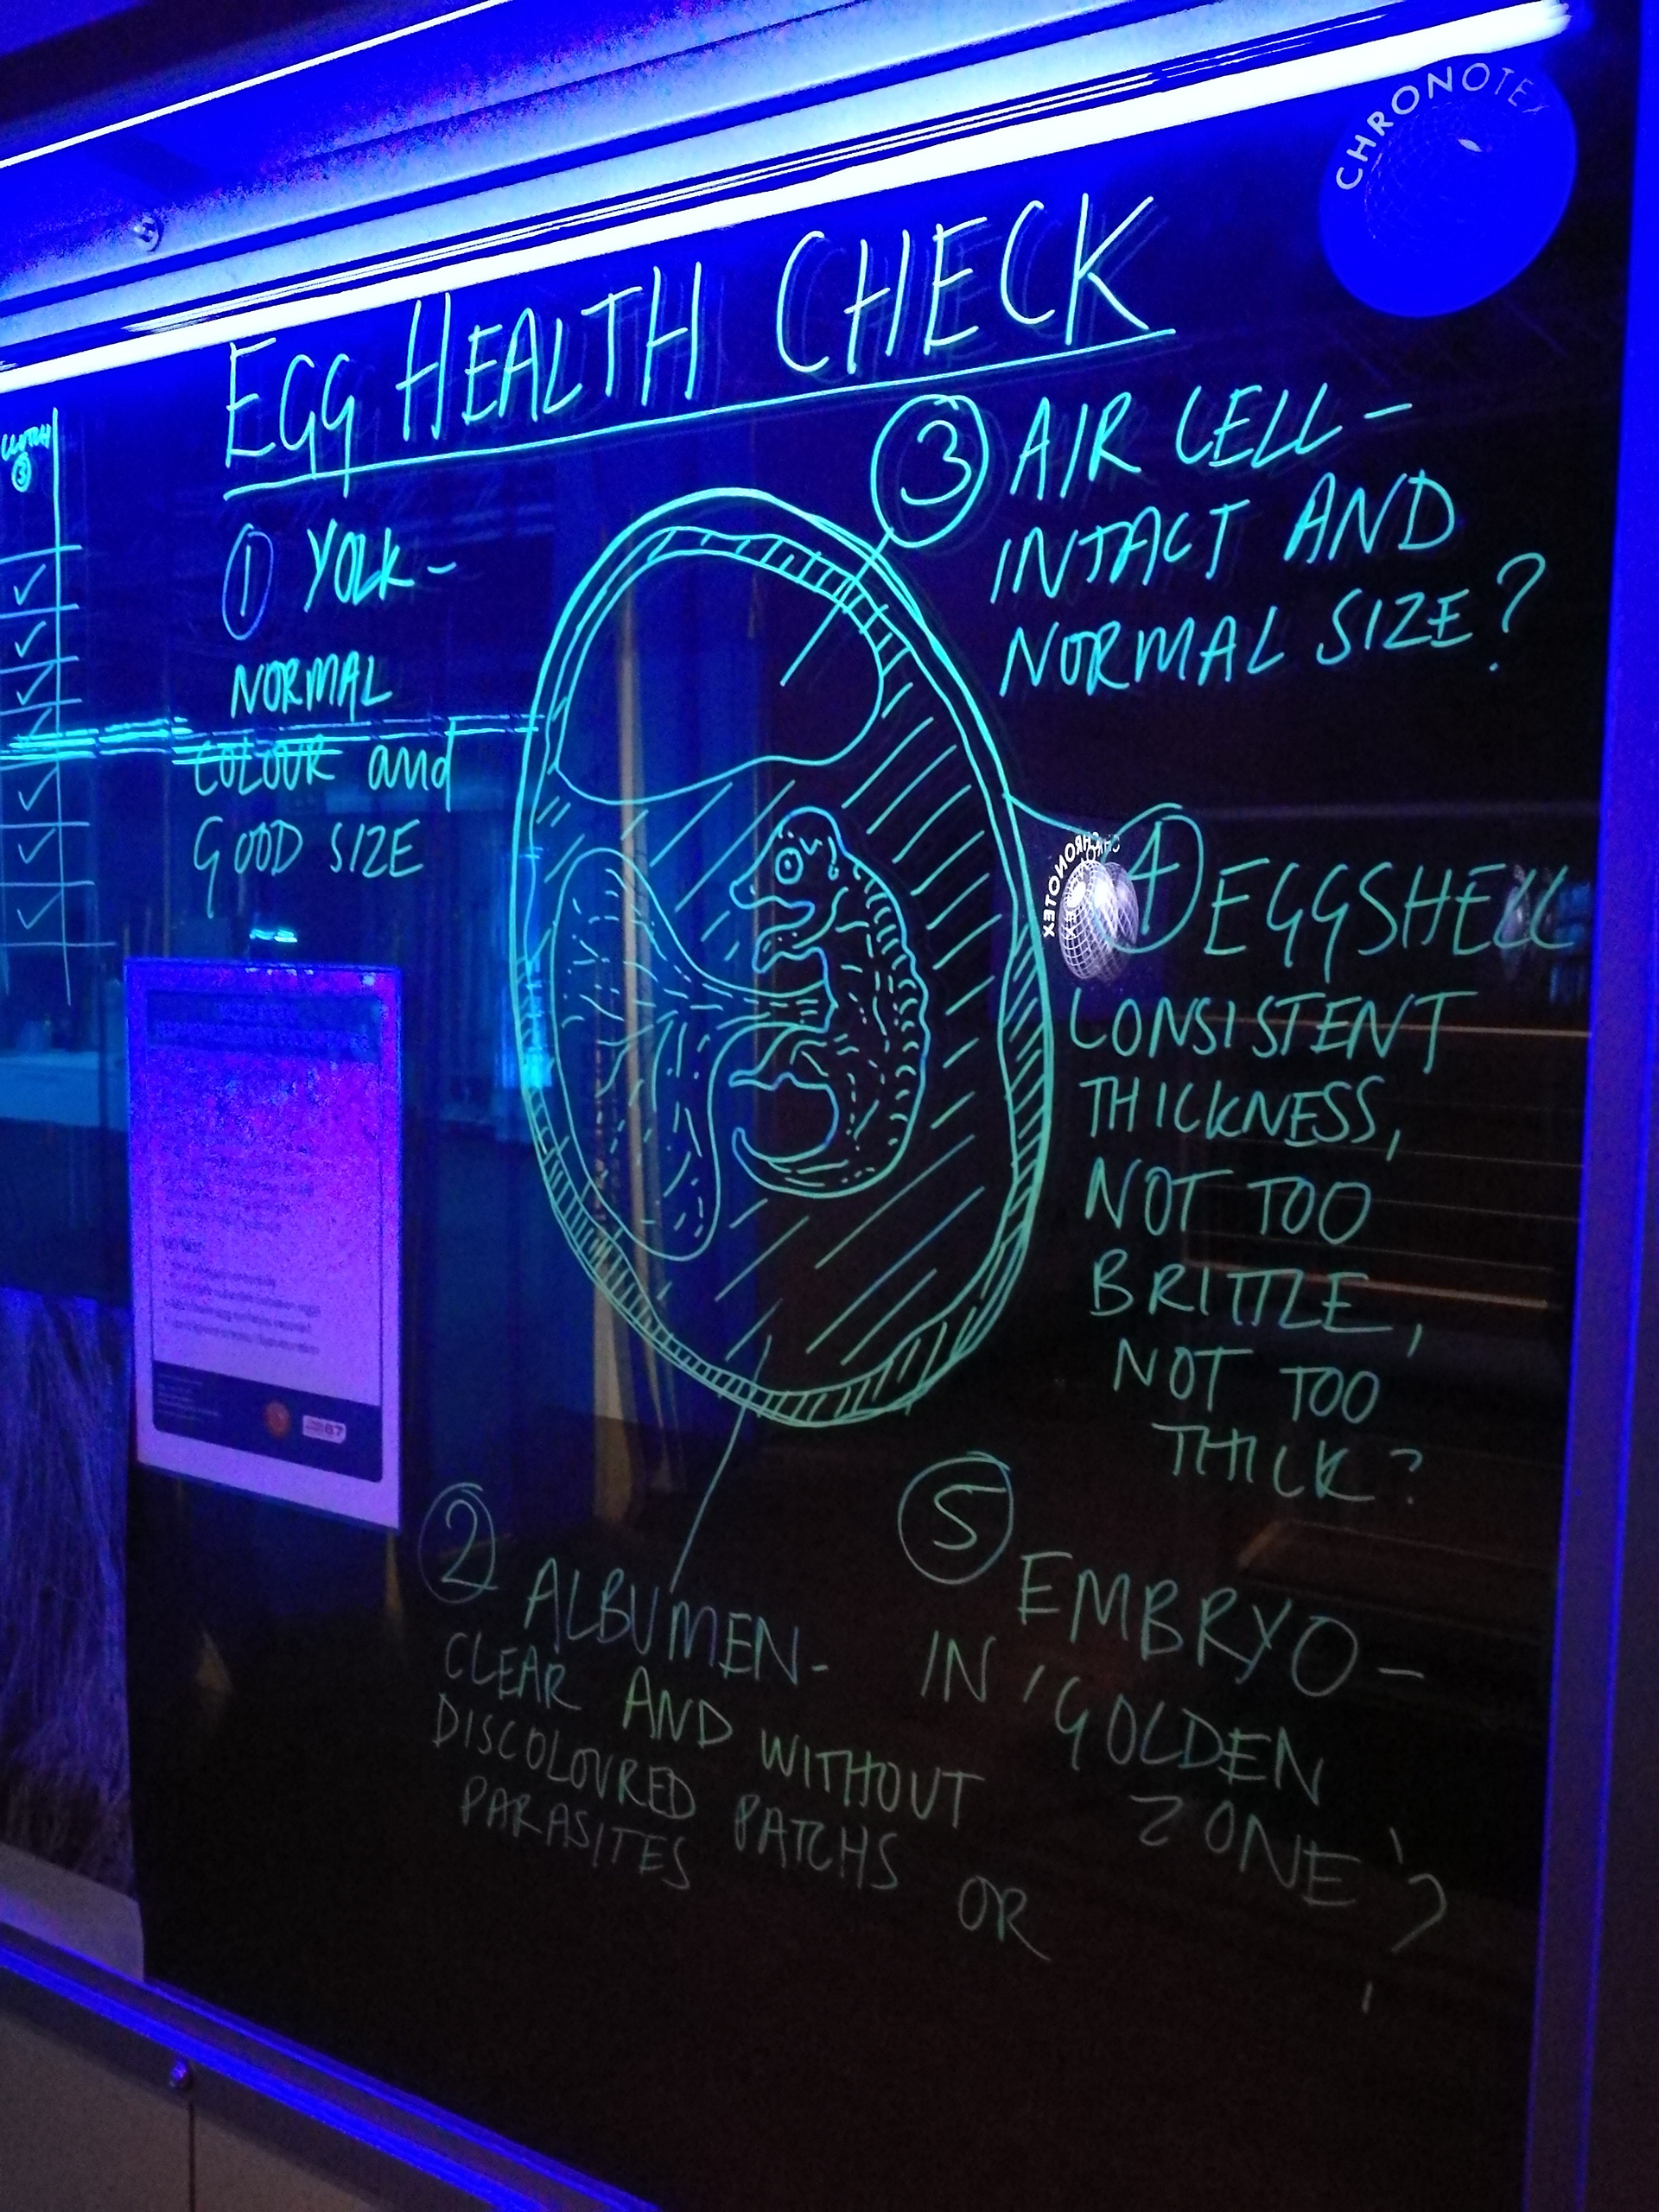 CHRONOTEX
EGG HEALTH CHECK
CLUTCH
3
① YOLK-
NORMAL
COLOUR and
GOOD SIZE
③ AIR CELL -
INTACT AND
NORMAL SIZE?
④ EGGSHELL
CONSISTENT
THICKNESS,
NOT TOO
BRITTLE,
NOT TOO
THICK?
CHRONOTEX
② ALBUMEN-
CLEAR AND WITHOUT
DISCOLOURED PATCHS OR
PARASITES
⑤ EMBRYO-
IN 'GOLDEN
ZONE'?